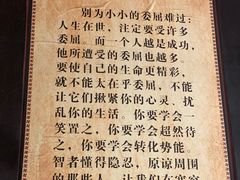 别为小小的委屈难过：
人生在世，注定要受许多
委屈。而一个人越是成功，
他所遭受的委屈也越多，
要使自己的生命更精彩，
就不能太在乎委屈，不能
让它们揪紧你的心灵、扰
乱你的生活。你要学会一
笑置之，你要学会超然待
之，你要学会转化势能。
智者懂得隐忍，原谅周围
的那些人，让我们在宽容